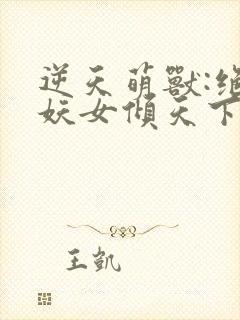 逆天萌獸:絕
妖女傾天下
王凱